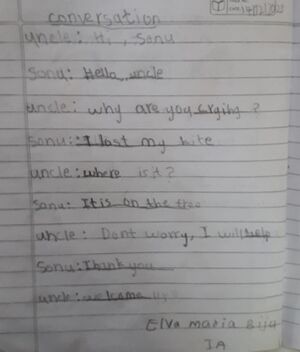 conversation
uncle: Hi, Sonu
Sonu: Hello, uncle
uncle: why are you crying?
Sonu: I lost my kite
uncle: where is it?
Sonu: It is on the tree
uncle: Dont worry, I will help
Sonu: Thank you
uncle: welcome
Elva maria Biju
IA